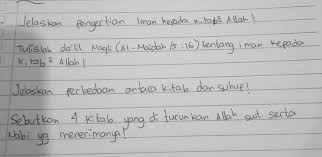 Jelaskan Pengertian Iman kepada kitab² Allah!
Tulislah dalil Naqli (Al-Maidah /5 : 16) tentang iman kepada
kitab² Allah!
Jelaskan perbedaan antara kitab dan suhuf!
Sebutkan 4 kitab yang di turunkan Allah swt. serta
Nabi yg menerimanya!